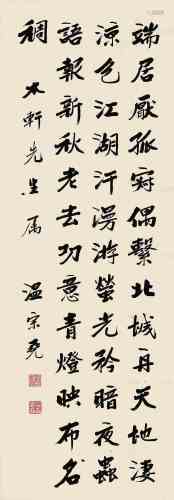 端居厭孤寂偶繫北城舟天地淒
涼色江湖汗漫游螢光矜暗夜蟲
語報新秋老去功意青燈映布名
裯 木軒先生屬 溫宗堯